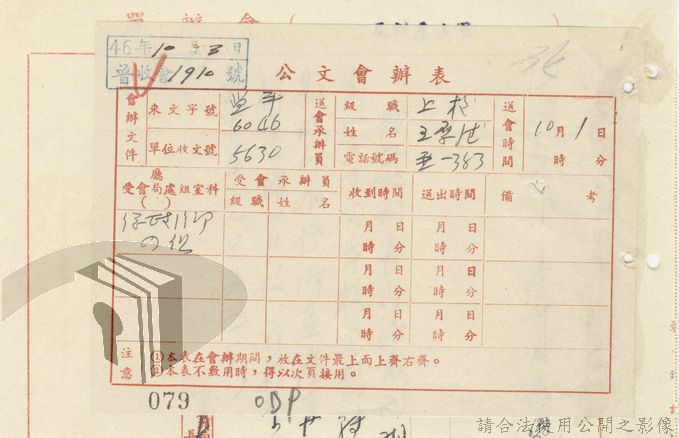 46年10月3日
普收會1910號
公文會辦表
會辦文件
來文字號
6046
單位收文號
5630
送會承辦員
級職
上校
姓名
電話號碼
-383
送會時間
10月1日
時 分
受會廳局處組室科
( )
受會承辦員
級職 姓名
收到時間
送出時間
備考
月 日
時 分
月 日
時 分
月 日
時 分
月 日
時 分
月 日
時 分
月 日
時 分
注意
①本表在會辦期間,放在文件最上面上齊右齊。
②本表不敷用時,得以次頁接用。
079
請合法使用公開之影像